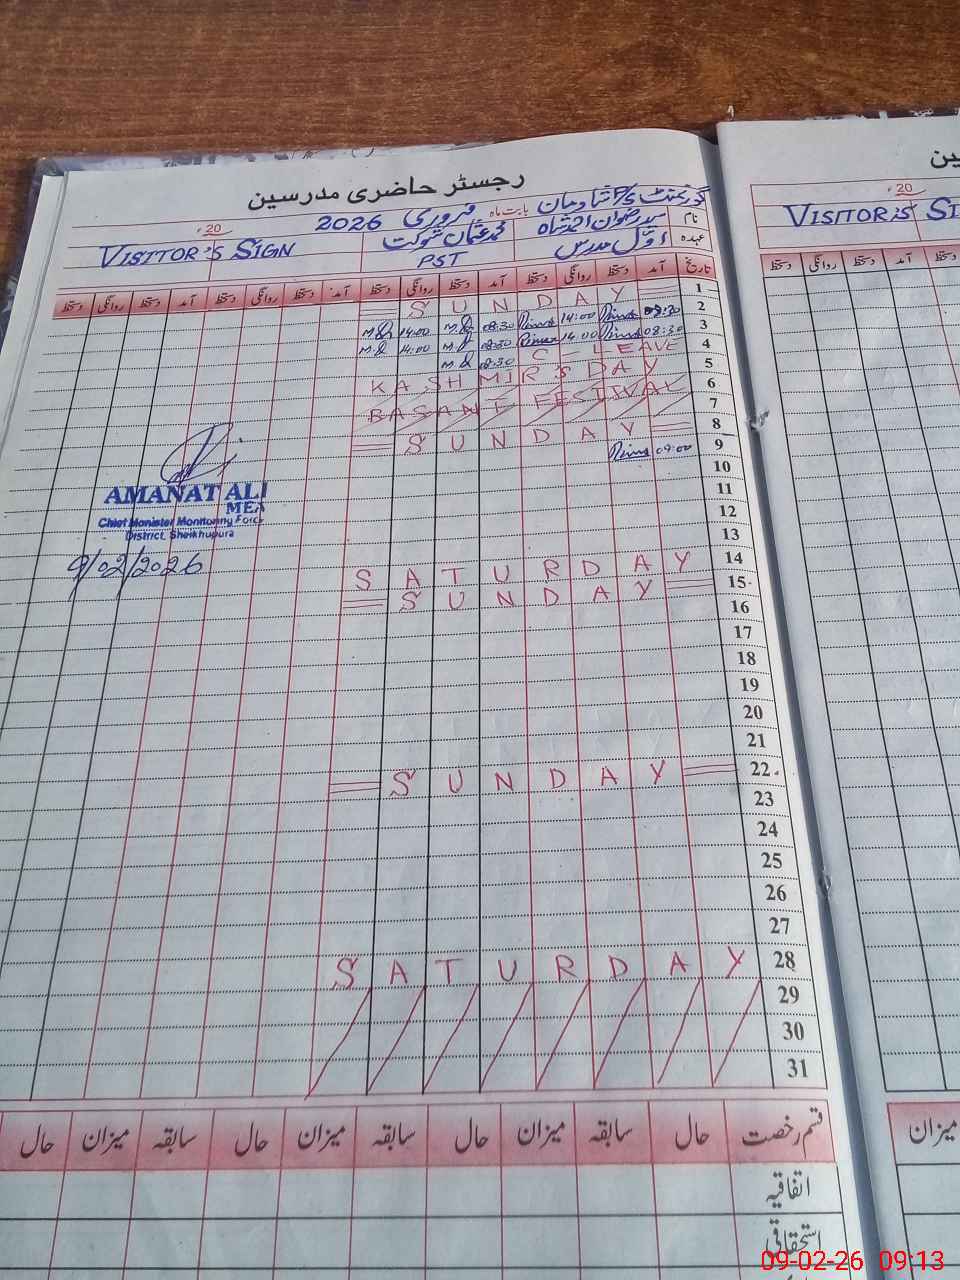 رجسٹر حاضری مدرسین
گورنمنٹ P/S شادمان بابت ماہ فروری 2026
20
نام سید رضوان احمد شاہ محمد عثمان شوکت VISITOR'S SIGN
عہدہ اوّل مدرس PST
تاریخ آمد دستخط روانگی دستخط آمد دستخط روانگی دستخط آمد دستخط روانگی دستخط آمد دستخط روانگی دستخط
1 SUNDAY
2 08:30 14:00 08:30 14:00
3 08:30 14:00 08:30 14:00
4 C - LEAVE 08:30
5 KASHMIR'S DAY
6 BASANT FESTIVAL
7
8 SUNDAY
9 09:00
10
11
12
13
14 SATURDAY
15 SUNDAY
16
17
18
19
20
21
22 SUNDAY
23
24
25
26
27
28 SATURDAY
29
30
31
AMANAT ALI
MEA
Chief Minister Monitoring Force
District, Sheikhupura
9/02/2026
قسم رخصت حال سابقہ میزان حال سابقہ میزان حال سابقہ میزان حال
اتفاقیہ
استحقاقی
ین
20
VISITOR'S SI
دستخط روانگی دستخط آمد دستخط
میزان
09-02-26 09:13